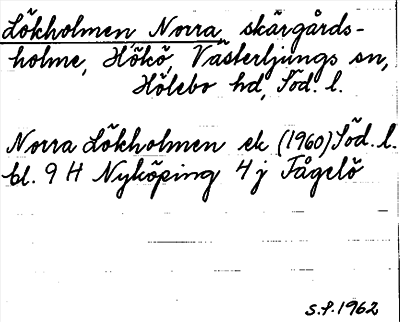 Lökholmen Norra, skärgårds-
holme, Hökö, Västerljungs sn,
Hölebo hd, Söd. l.
Norra Lökholmen ek (1960) Söd. l.
bl. 9 H Nyköping 4 j Fågelö
S.P. 1962